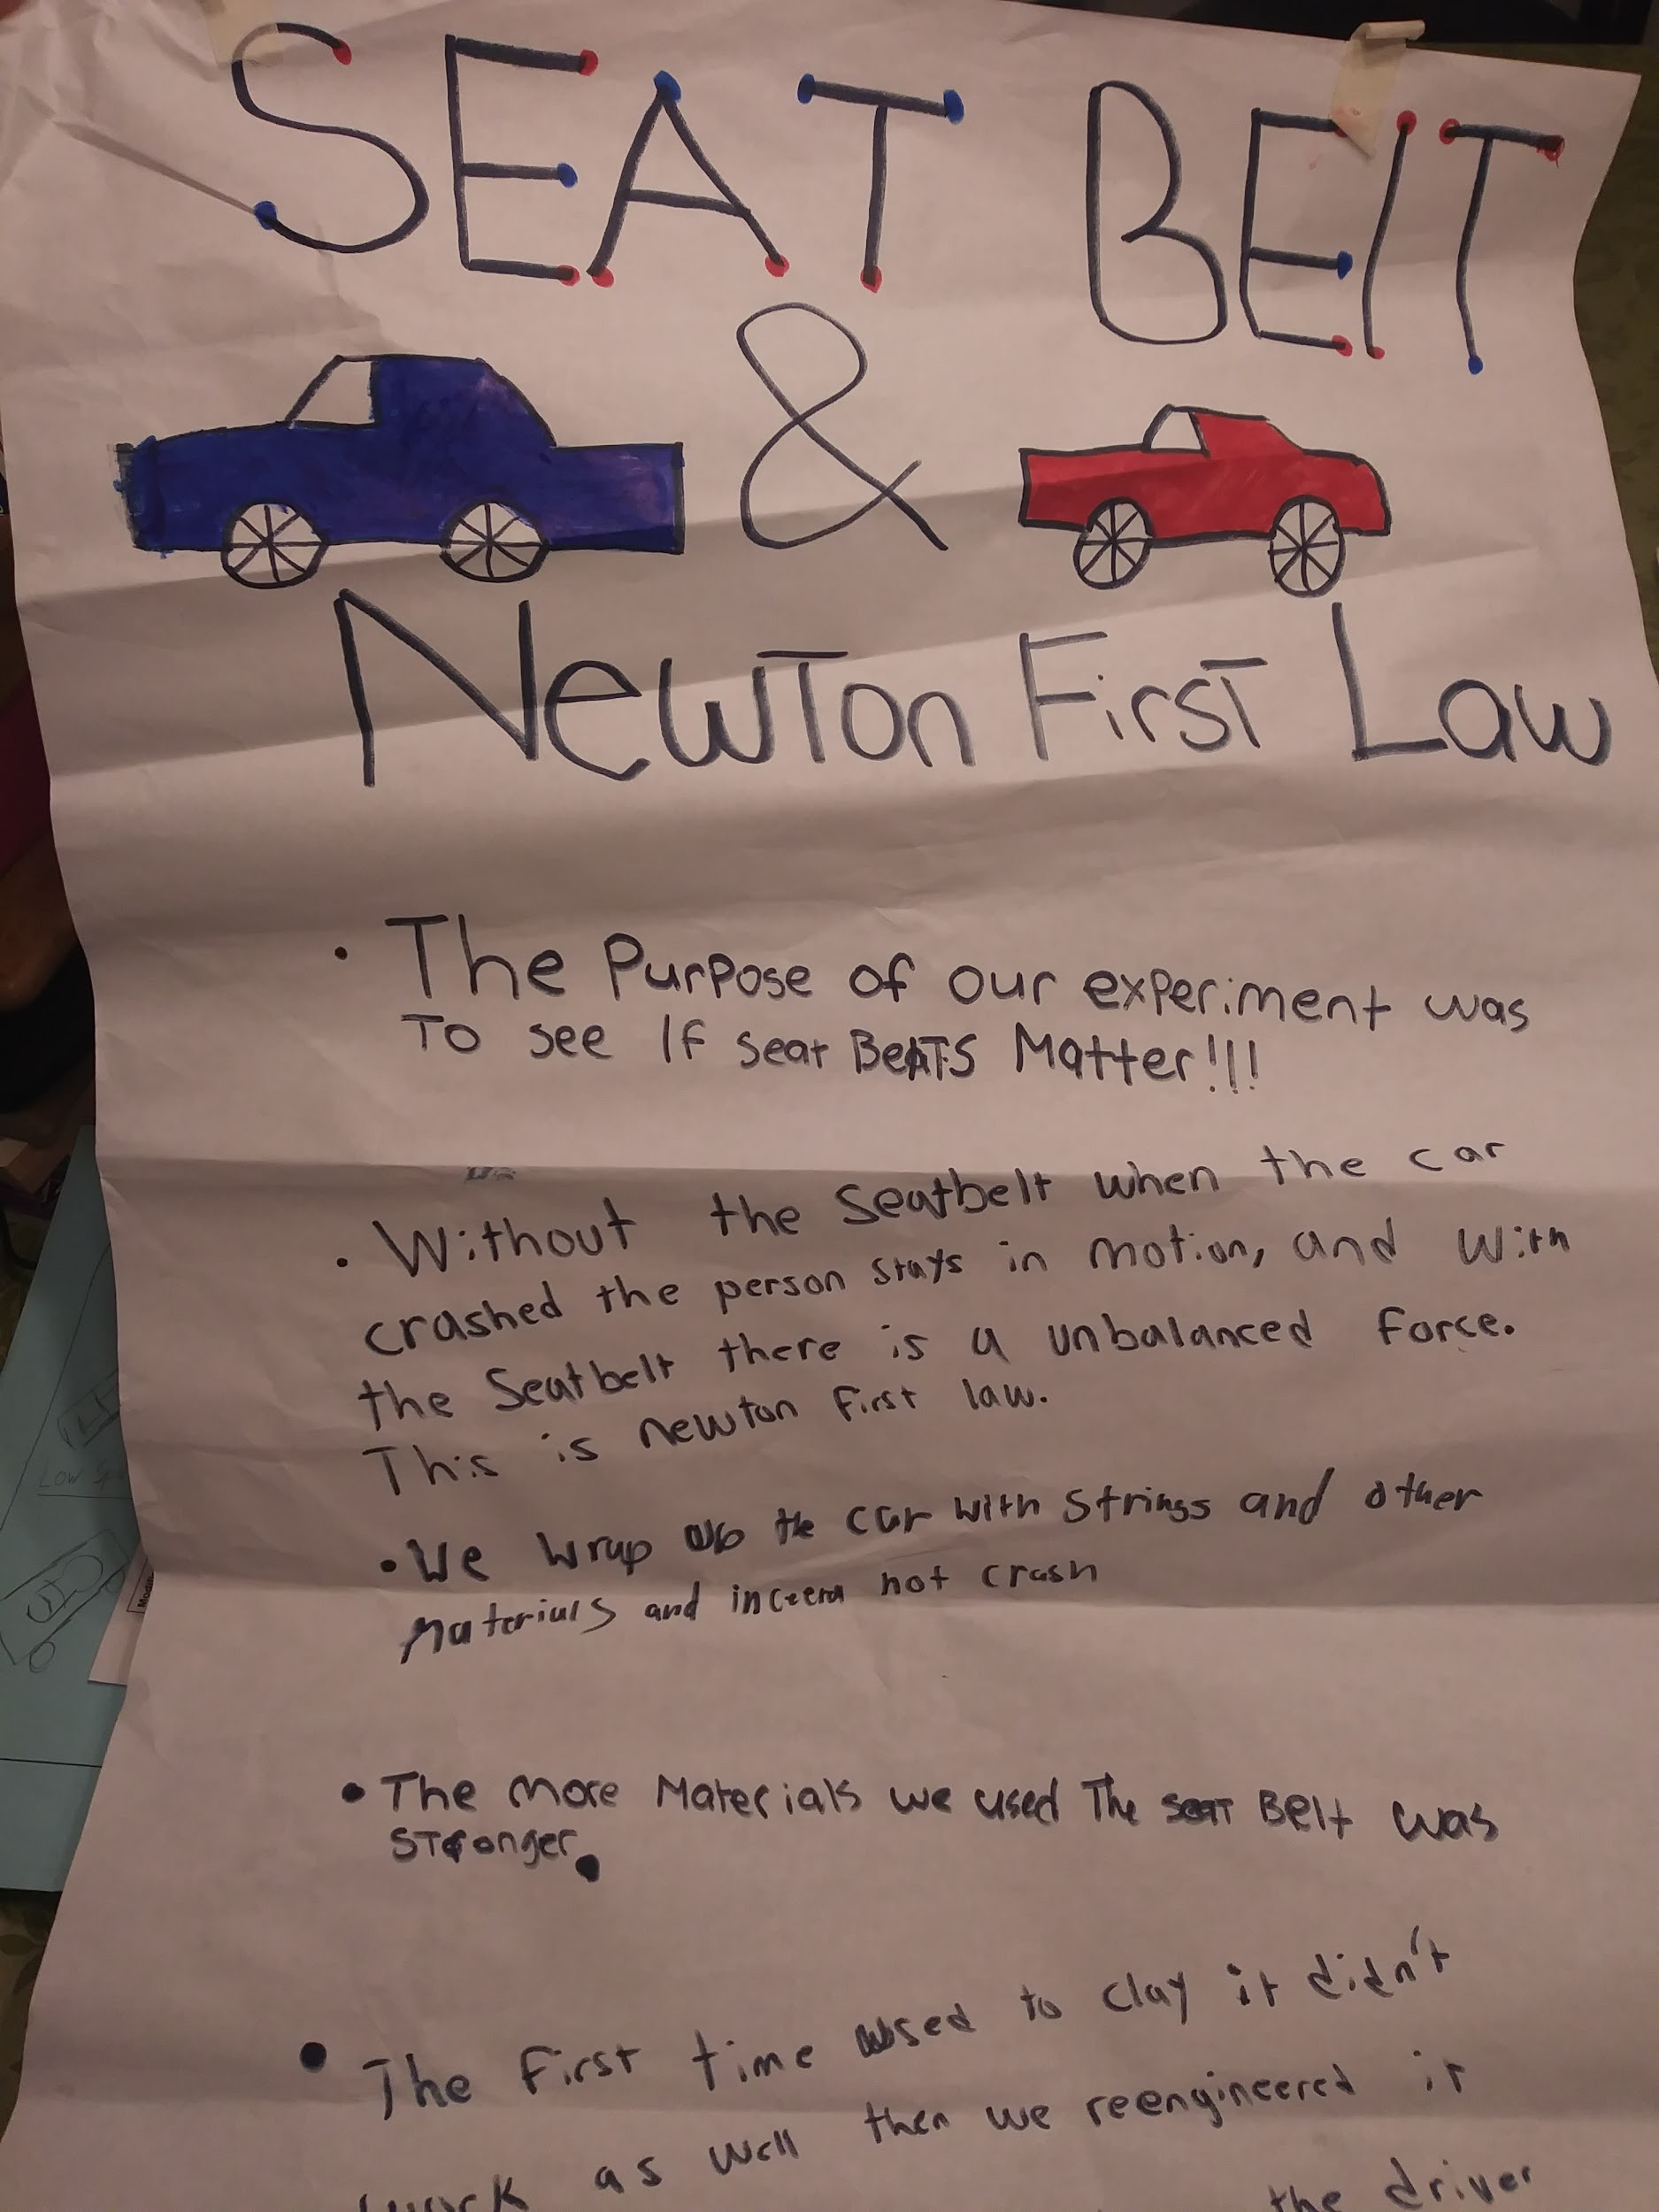 SEAT BElT
&
NewTon FirsT Law
• The Purpose of our experiment was
To see If seat BeltS Matter!!!
• Without the Seatbelt when the car
crashed the person stays in motion, and with
the Seatbelt there is a unbalanced force.
This is newton first law.
• We wrap the car with Strings and other
Materials and not crash
• The more Materials we used The seat Belt was
STronger.
• The first time used to clay it didn't
work as well then we reengineered it
the driver
Low